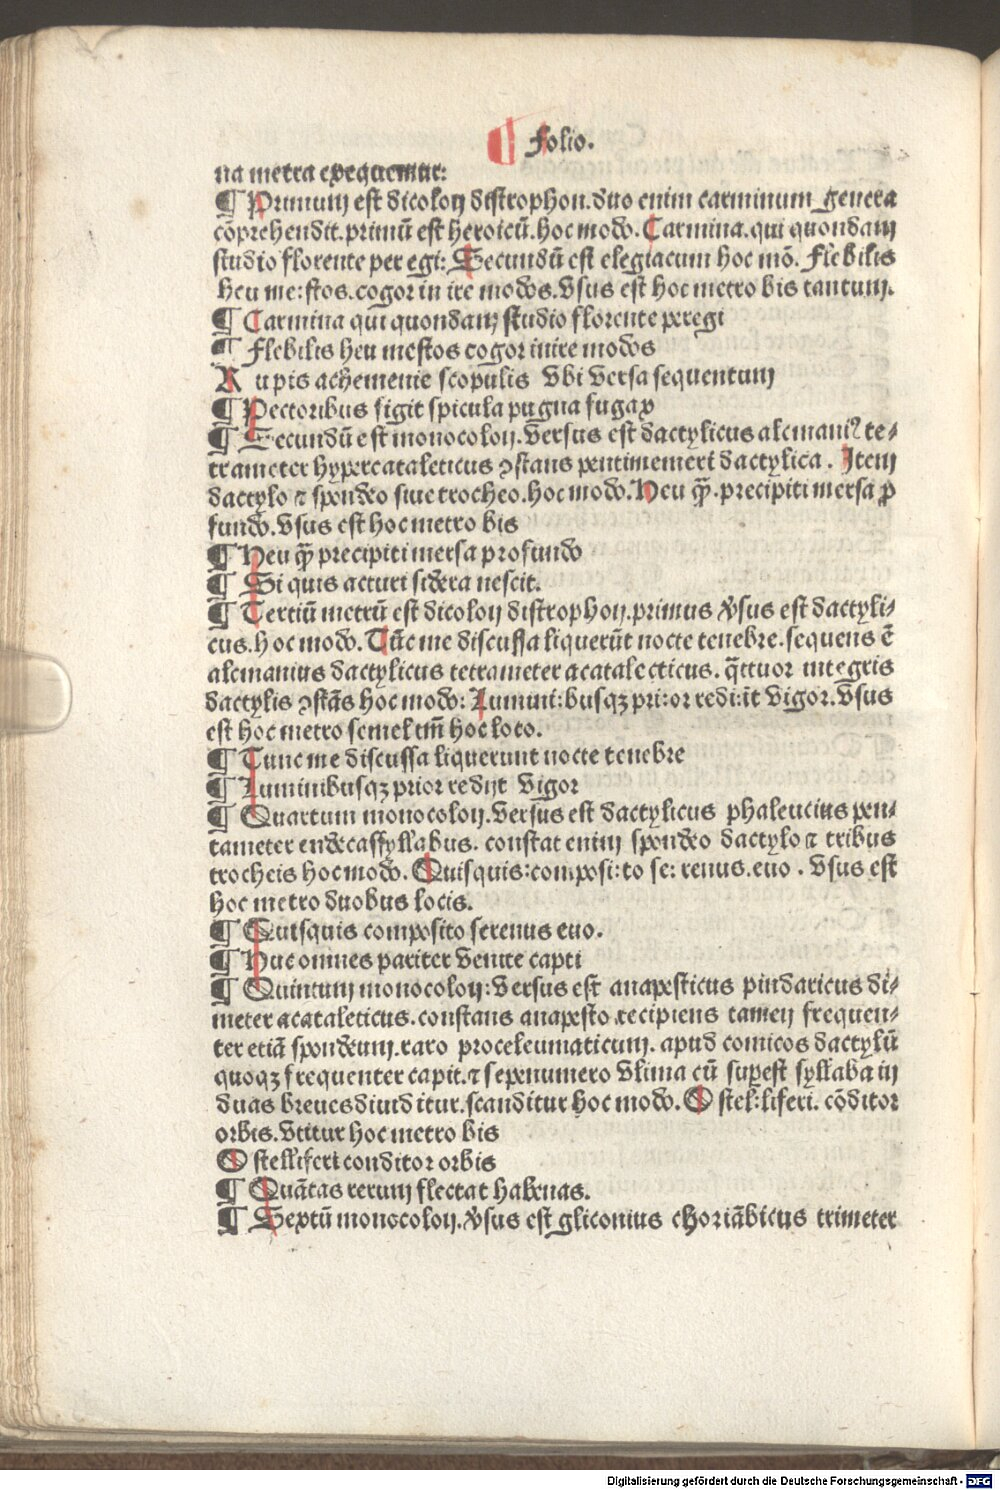 ¶ Folio.
na metra exequemur:
¶ Primum est dicolon distrophon. duo enim carminum genera
cōprehendit. primū est heroicū. hoc modo. Carmina. qui quondam
studio florente per egi: Secundū est elegiacum hoc mō. Flebilis
heu me: stos. cogor in ire modos. Vsus est hoc metro bis tantum.
¶ Carmina qui quondam studio florente peregi
¶ Flebilis heu mestos cogor inire modos
Rupis achemenie scopulis Vbi Versa sequentum
¶ Pectoribus figit spicula pugna fugax
¶ Secundū est monocolon. Versus est dactylicus alcmaniꝰ te⸗
trameter hypercataleticus ꝯstans pentimemeri dactylica. Item
dactylo ⁊ spondeo siue trocheo. hoc modo. Heu qͣ̄. precipiti mersa ꝓ
fundo. Vsus est hoc metro bis
¶ Heu qͣ̄ precipiti mersa profundo
¶ Si quis acturi sidera nescit.
¶ Tertiū metrū est dicolon distrophon. primus v̓sus est dactyli⸗
cus. hoc modo. Tūc me discussa liquerūt nocte tenebre. sequens ē
alcmanius dactylicus tetrameter acatalecticus. q̄ttuor integris
dactylis ꝯstās hoc modo: Lumini: busqꝫ pri: or redi: it Vigor. Vsus
est hoc metro semel tm̄ hoc loco.
¶ Tunc me discussa liquerunt nocte tenebre
¶ Luminibusqꝫ prior redijt Vigor
¶ Quartum monocolon. Versus est dactylicus phaleucius pen⸗
tameter endecassyllabus. constat enim spondeo dactylo ⁊ tribus
trocheis hoc modo. Quisquis: composi: to se: renus. euo. Vsus est
hoc metro duobus locis.
¶ Quisquis composito serenus euo.
¶ Huc omnes pariter Venite capti
¶ Quintum monocolon: Versus est anapesticus pindaricus di⸗
meter acataleticus. constans anapesto recipiens tamen frequen⸗
ter etiā spondeum. raro proceleumaticum. apud comicos dactylū
quoqꝫ frequenter capit. ⁊ sepenumero Vlima cū supest syllaba in
duas breues diuiditur. scanditur hoc modo. O stel: liferi. cōditor
orbis. Vtitur hoc metro bis
O stelliferi conditor orbis
¶ Quātas rerum flectat habenas.
¶ Sextū monocolon. v̓sus est gliconius choriābicus trimeter
Digitalisierung gefördert durch die Deutsche Forschungsgemeinschaft - DFG